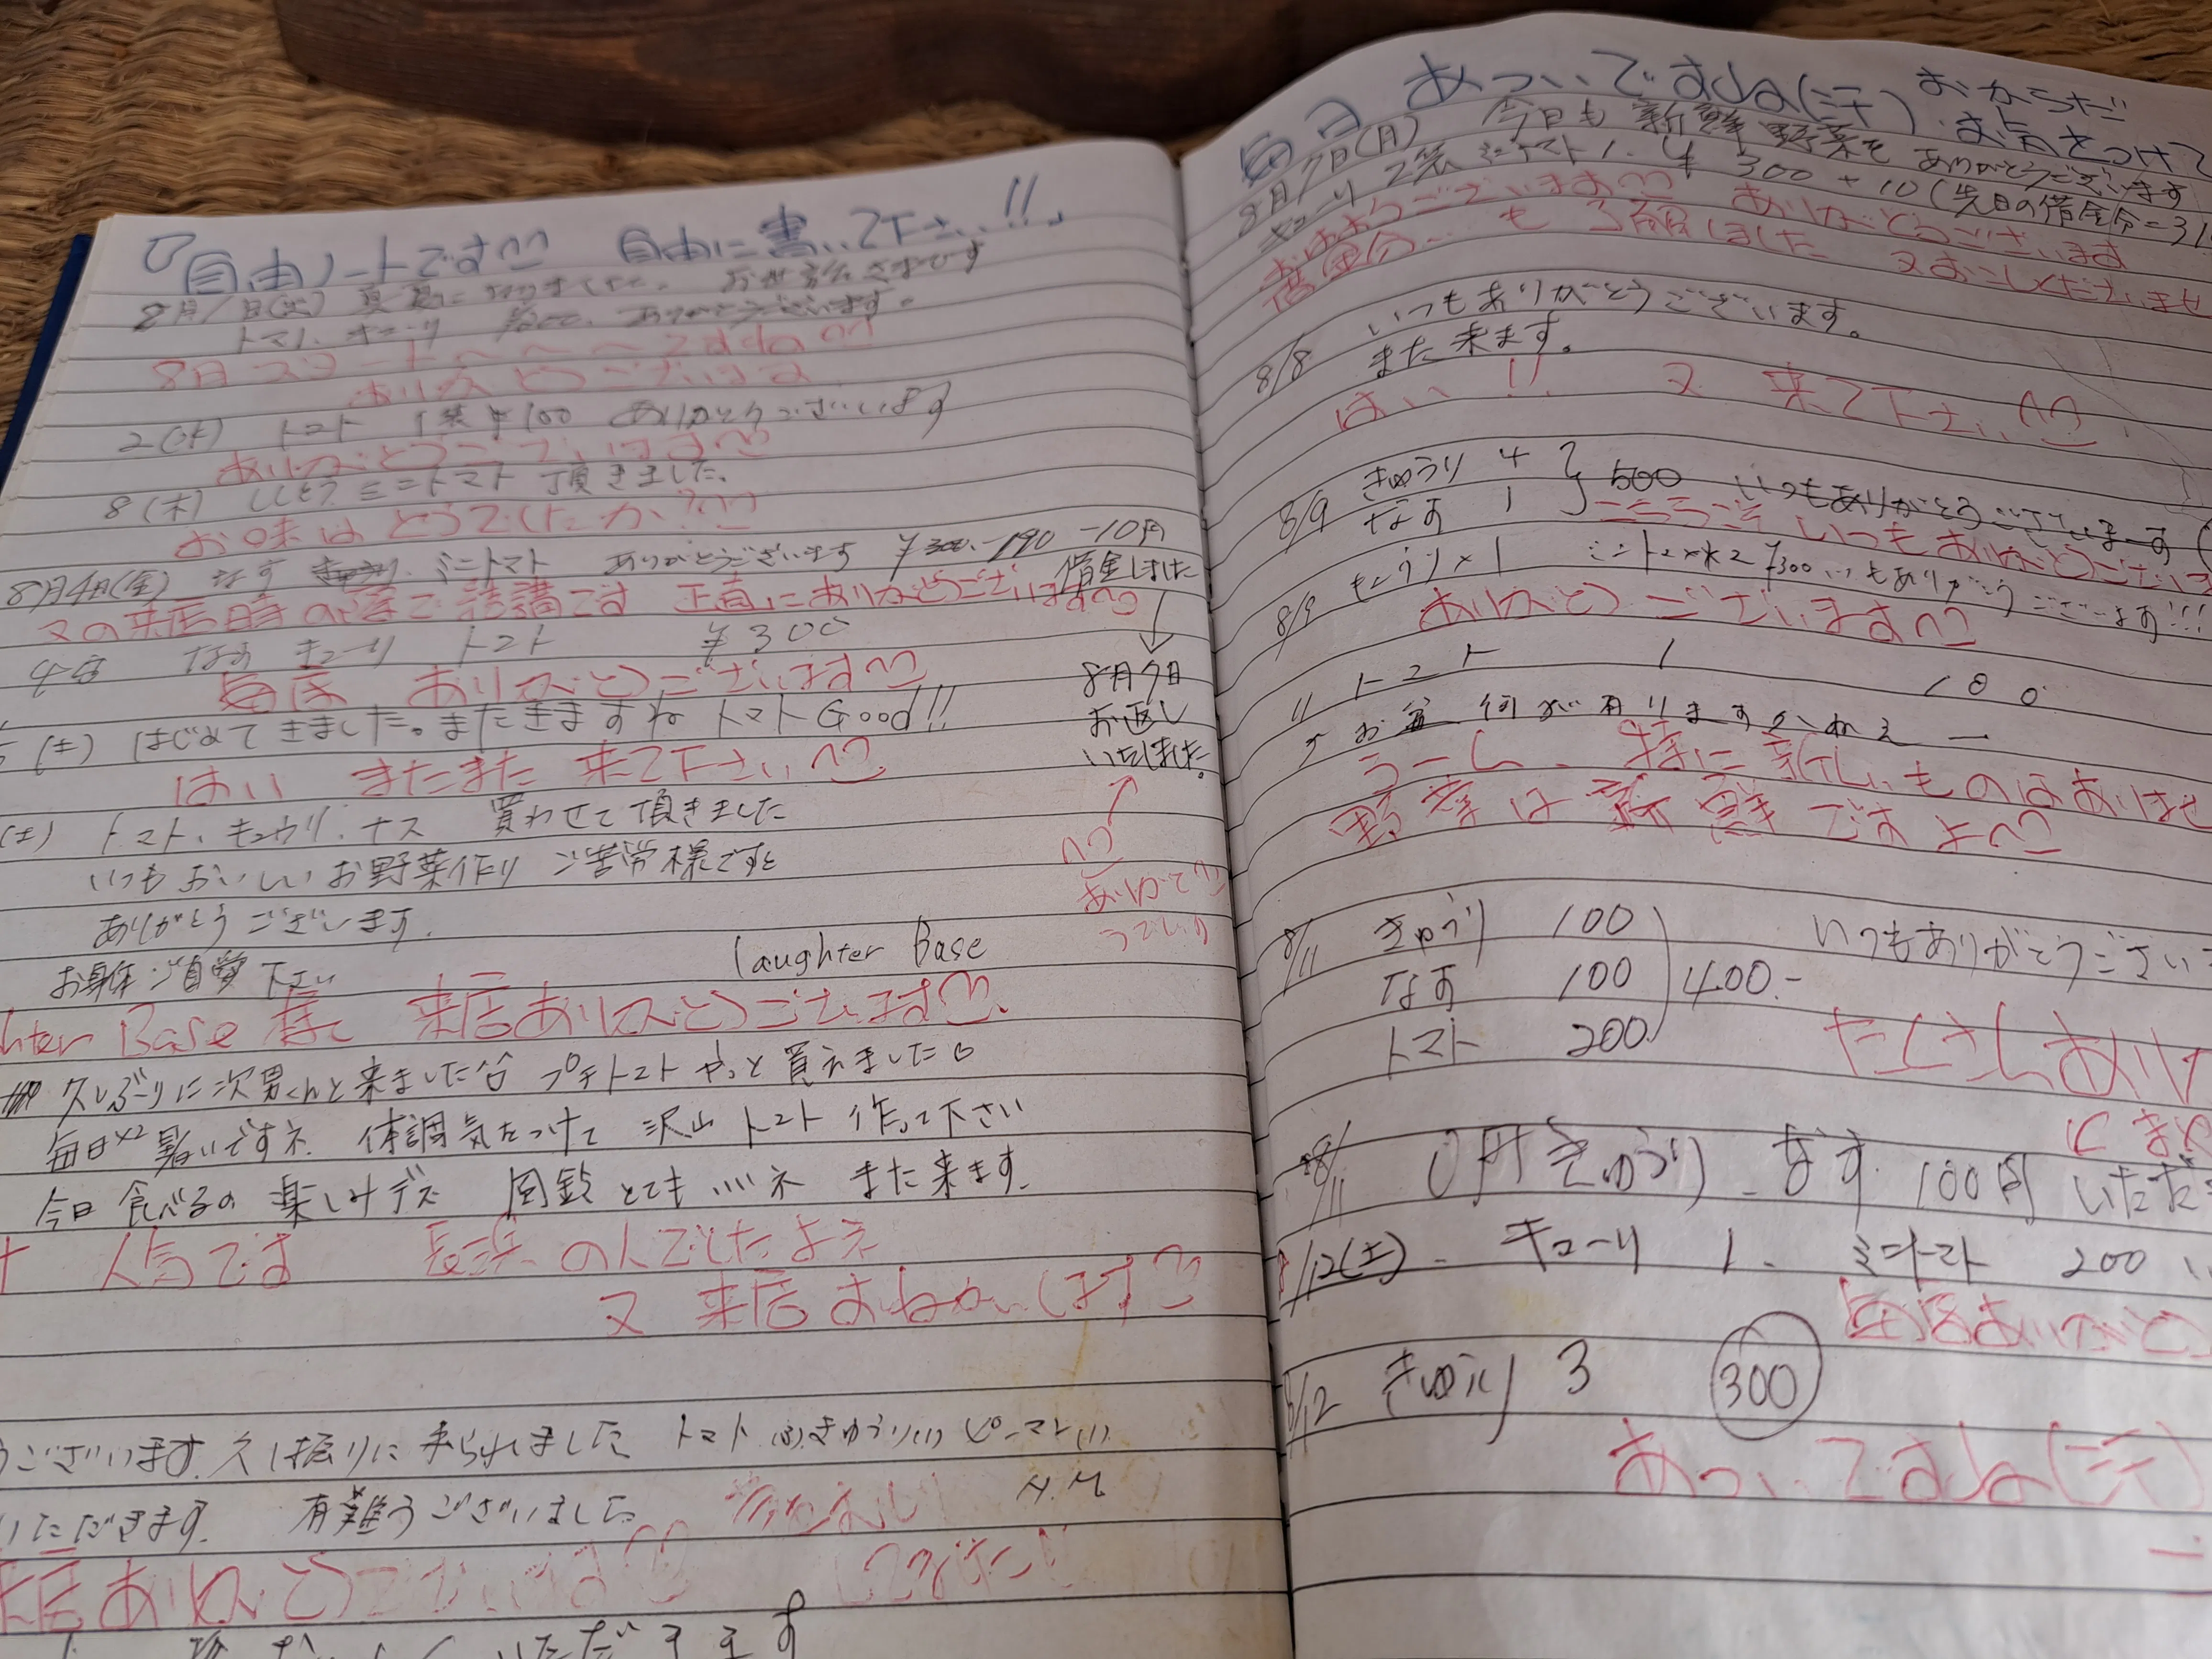 『自由ノートです 自由に書いて下さい!!』
8月1日(火) 真夏になりました。 お世話さまです
トマト、キューリ ありがとうございます。
8月スタート〜〜〜ですね
ありがとうございます
2(水) トマト 1袋 ¥100 ありがとうございます
ありがとうございます
(木) ししとう ミニトマト 頂きました。
お味はどうでしたか?
8月4日(金) なす ミニトマト ありがとうございます ¥300.-190 -10円
借金しました
又の来店時の際で結構です 正直にありがとうございます
なす キューリ トマト ¥300
毎度 ありがとうございます
8月7日
お返し
いたしました。
(土) はじめてきました。またきますね トマトGood!!
はい またまた 来て下さい
(土) トマト、キュウリ、ナス 買わせて頂きました
いつもおいしいお野菜作り ご苦労様ですと
ありがとうございます。
お身体ご自愛下さい
laughter Base
hter Base 様 来店ありがとうございます
久しぶりに次男くんと来ました プチトマトやっと買えました
毎日×2 暑いですネ 体調気をつけて 沢山 トマト 作って下さい
今日 食べるの 楽しみデス 風鈴 とても いいネ また来ます。
人気です 長浜の人でしたよネ
又 来店おねがいします
うございます。久し振りに来られました トマト きゅうり(1) ピーマン(1)
いただきます。 有難うございました N.M
来店ありがとうございます
いただきます
毎日 あついですね(汗) おからだ
お気をつけて
8月7日(月) 今日も 新鮮野菜を ありがとうございます
キューリ 2袋 ミニトマト 1. ¥300+10(先日の借金分=31
ありがとうございます ありがとうございます
借金分… も 了解しました 又おこしくださいませ
8/8 いつもありがとうございます。
また来ます。
はい!! 又 来て下さい
8/9 きゅうり 4
なす 1 } 500 いつもありがとうございます
こちらこそ いつもありがとうござい
8/9 きゅうり×1 ミニトマト×2 ¥300 いつもありがとうございます!!!
ありがとうございます
11 トマト 1 100
お盆 何が有りますかねえー
うーん、特に新しいものはありませ
野菜は新鮮ですよ
8/11 きゅうり 100
なす 100
トマト 200 ) 400.-
いつもありがとうござい
たくさんあり
8/11 きゅうり、なす 100円 いただ
8/12(土) キューリ 1. ミニトマト 200
毎度ありがと
8/12 きゅうり 3 300
あついですね(汗)